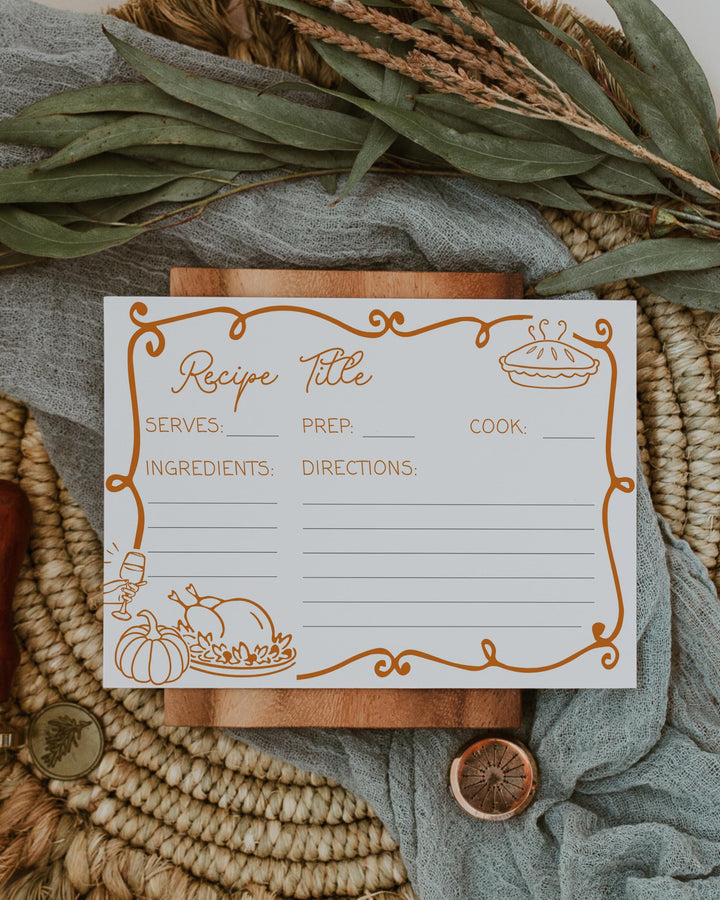 Recipe Title
SERVES: PREP: COOK:
INGREDIENTS: DIRECTIONS: